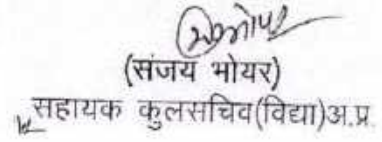 (संजय भोयर)
सहायक कुलसचिव(विद्या)अ.प्र.